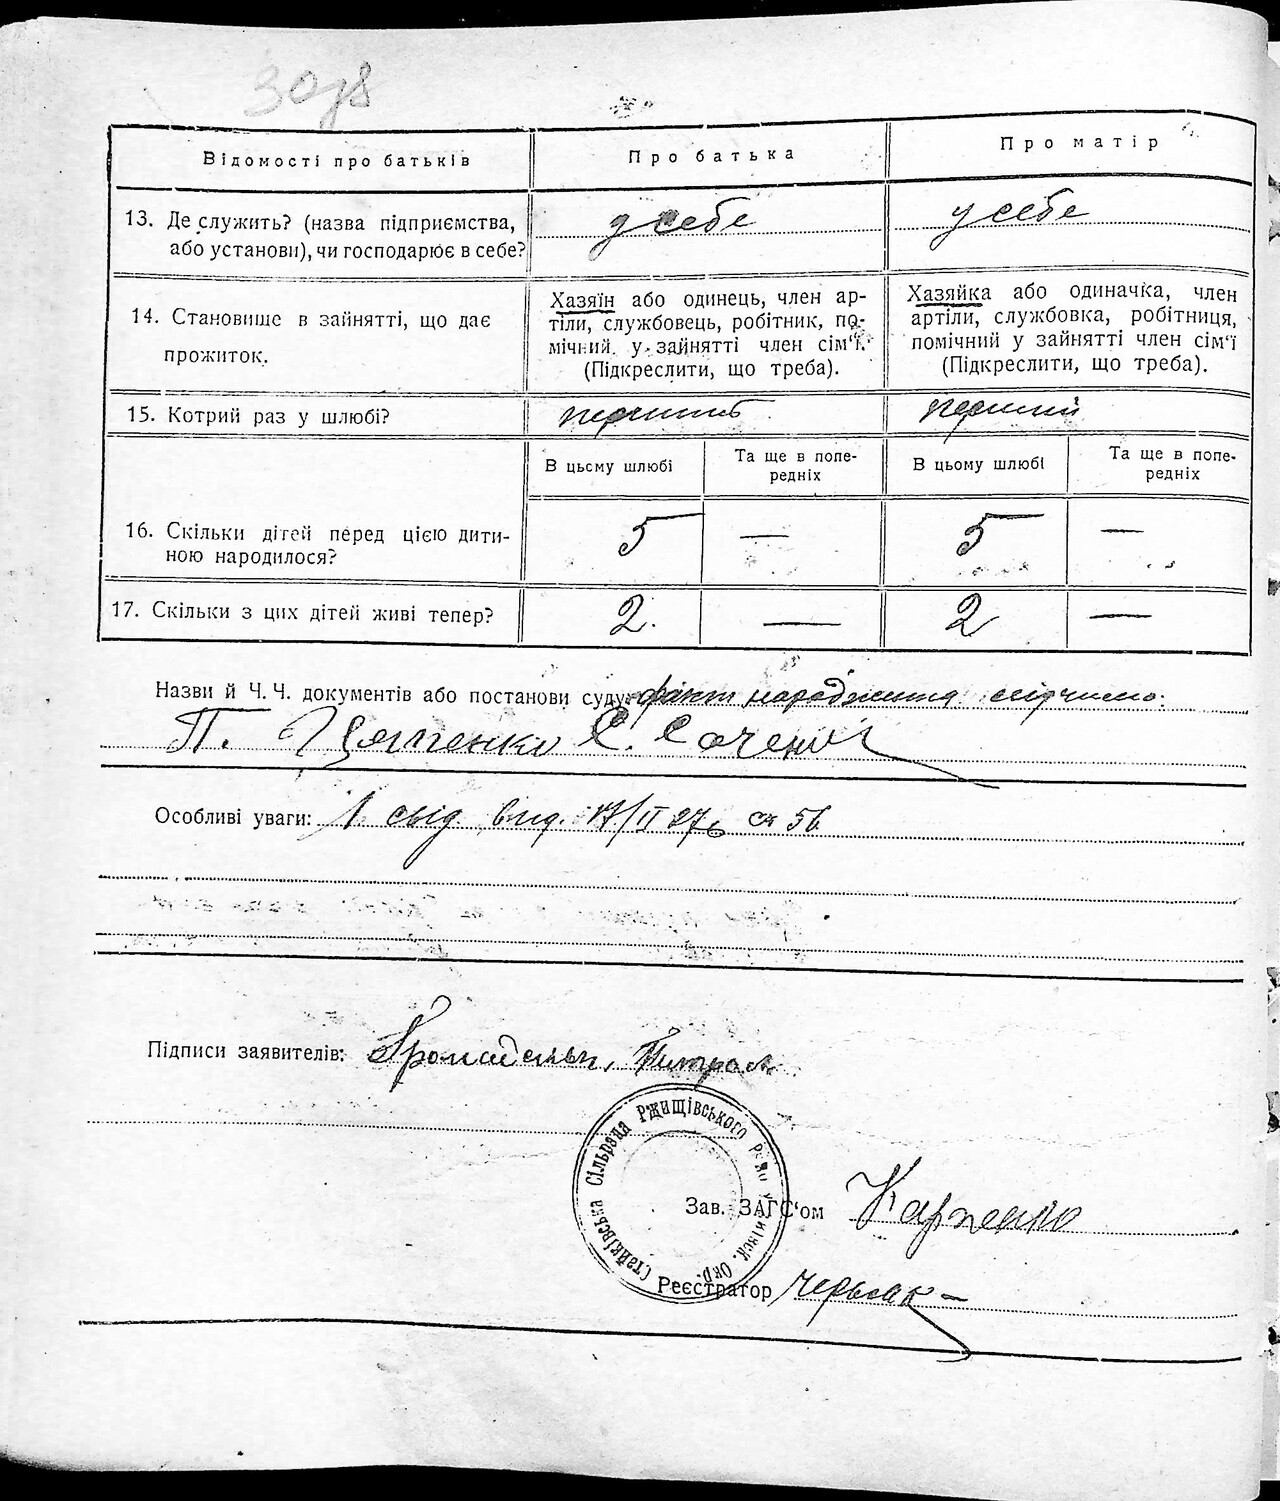 30
Відомості про батьків
Про батька
Про матір
13. Де служить? (назва підприємства, або установи), чи господарює в себе?
у себе
у себе
14. Становище в зайнятті, що дає прожиток.
Хазяїн або одинець, член ар-
тіли, службовець, робітник, по-
мічний у зайнятті член сім'ї.
(Підкреслити, що треба).
Хазяйка або одиначка, член
артіли, службовка, робітниця,
помічний у зайнятті член сім'ї
(Підкреслити, що треба).
15. Котрий раз у шлюбі?
перший
перший
В цьому шлюбі
Та ще в попе-
редніх
В цьому шлюбі
Та ще в попе-
редніх
16. Скільки дітей перед цією дити-
ною народилося?
5 — 5 —
17. Скільки з цих дітей живі тепер?
2. — 2 —
Назви й Ч.Ч. документів або постанови суду: факт народження
П. С.
Особливі уваги: 1 17/II 27 56
Підписи заявителів:
Стайківська Сільрада Ржищівського Окр.
Зав. ЗАГС'ом Карпенко
Реєстратор Червяк